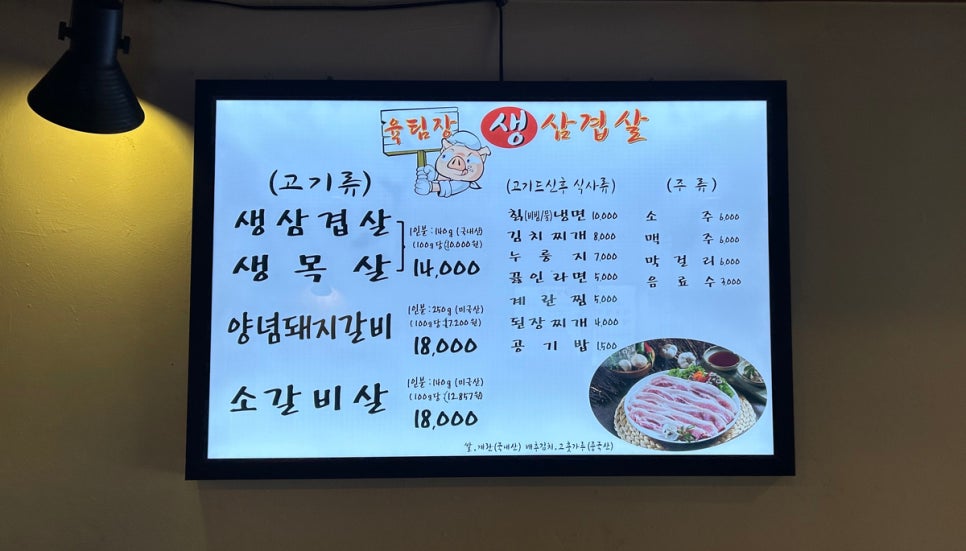 육팀장 생삼겹살
(고기류)
생삼겹살
생목살
1인분:140g (국내산)
(100g당:10.000원)
14,000
양념돼지갈비
1인분:250g (미국산)
(100g당:7.200원)
18,000
소갈비살
1인분:140g (미국산)
(100g당:12.857원)
18,000
(고기드신후 식사류)
칡(비빔/물)냉면 10,000
김치찌개 8,000
누룽지 7,000
끓인라면 5,000
계란찜 5,000
된장찌개 4,000
공기밥 1,500
(주류)
소주 6,000
맥주 6,000
막걸리 6,000
음료수 3,000
쌀,계란(국내산) 배추김치.고춧가루(중국산)